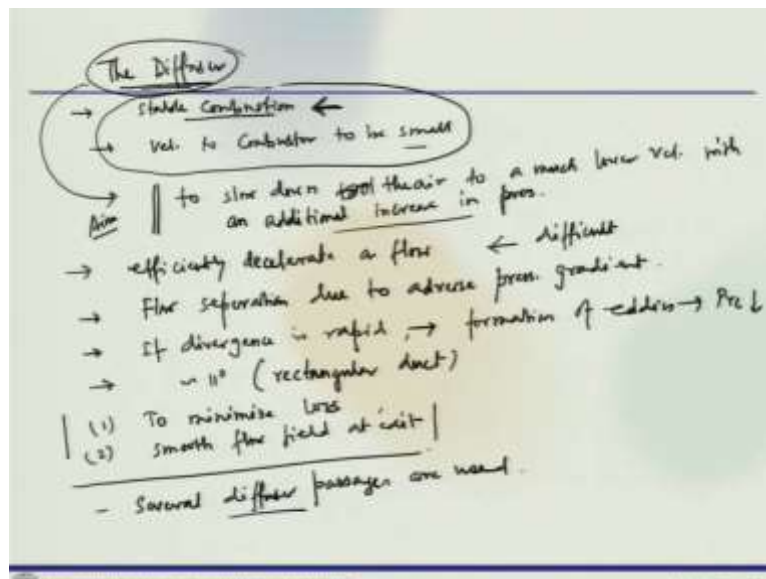 The Diffuser
→ stable Combustion ←
→ Vel. to Combustor to be small
Aim → to slow down the air to a much lower vel. with
an additional increase in pres.
→ efficiently decelerate a flow ← difficult
→ Flow separation due to adverse pres. gradient.
→ If divergence is rapid, → formation of eddies → Pre ↓
→ ~ 11° (rectangular duct)
(1) To minimise Loss
(2) smooth flow field at exit
- Several diffuser passages are used.